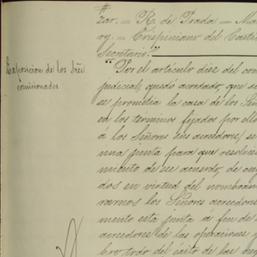 zar. — R. de Prada — Ma
ry. — Crispiniano del Casti
Secretario."
Exposicion de los Sres
comisionados
"Por el artículo diez del con
judicial, quedó acordado, que se
se prometia la casa de los Señ
en los terminos fijados por ello
á los Señores sus acreedores, se
una junta para que
miento de su acuerdo, de
dos en virtud del nombram
ramos los Señores acreedores
mento esta junta a fin de
acreedores de las operaciones y
bre todo del éxito de las